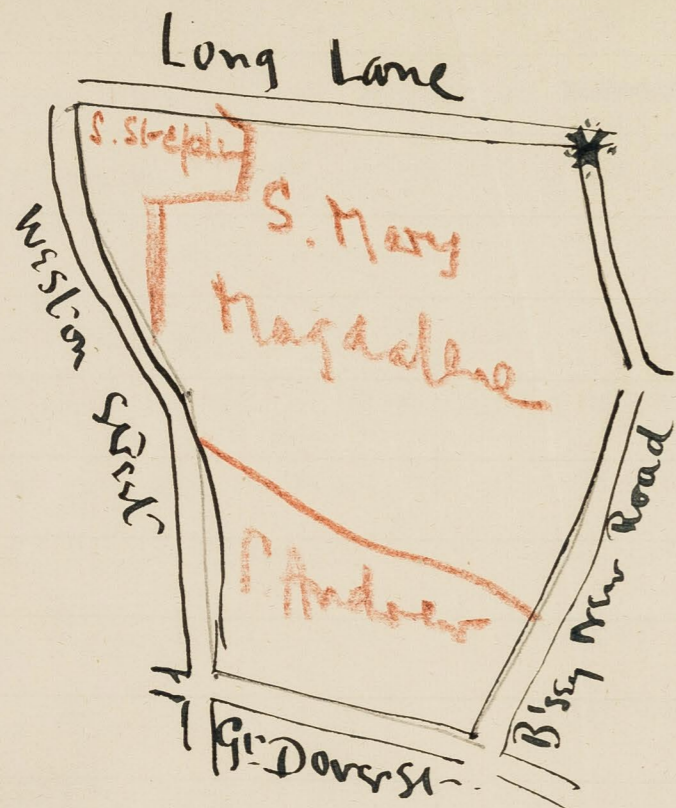 Long Lane
S. Stephen
S. Mary
Magdalene
Weston Street
S. Andrew
B'sey New Road
Gt. Dover St.